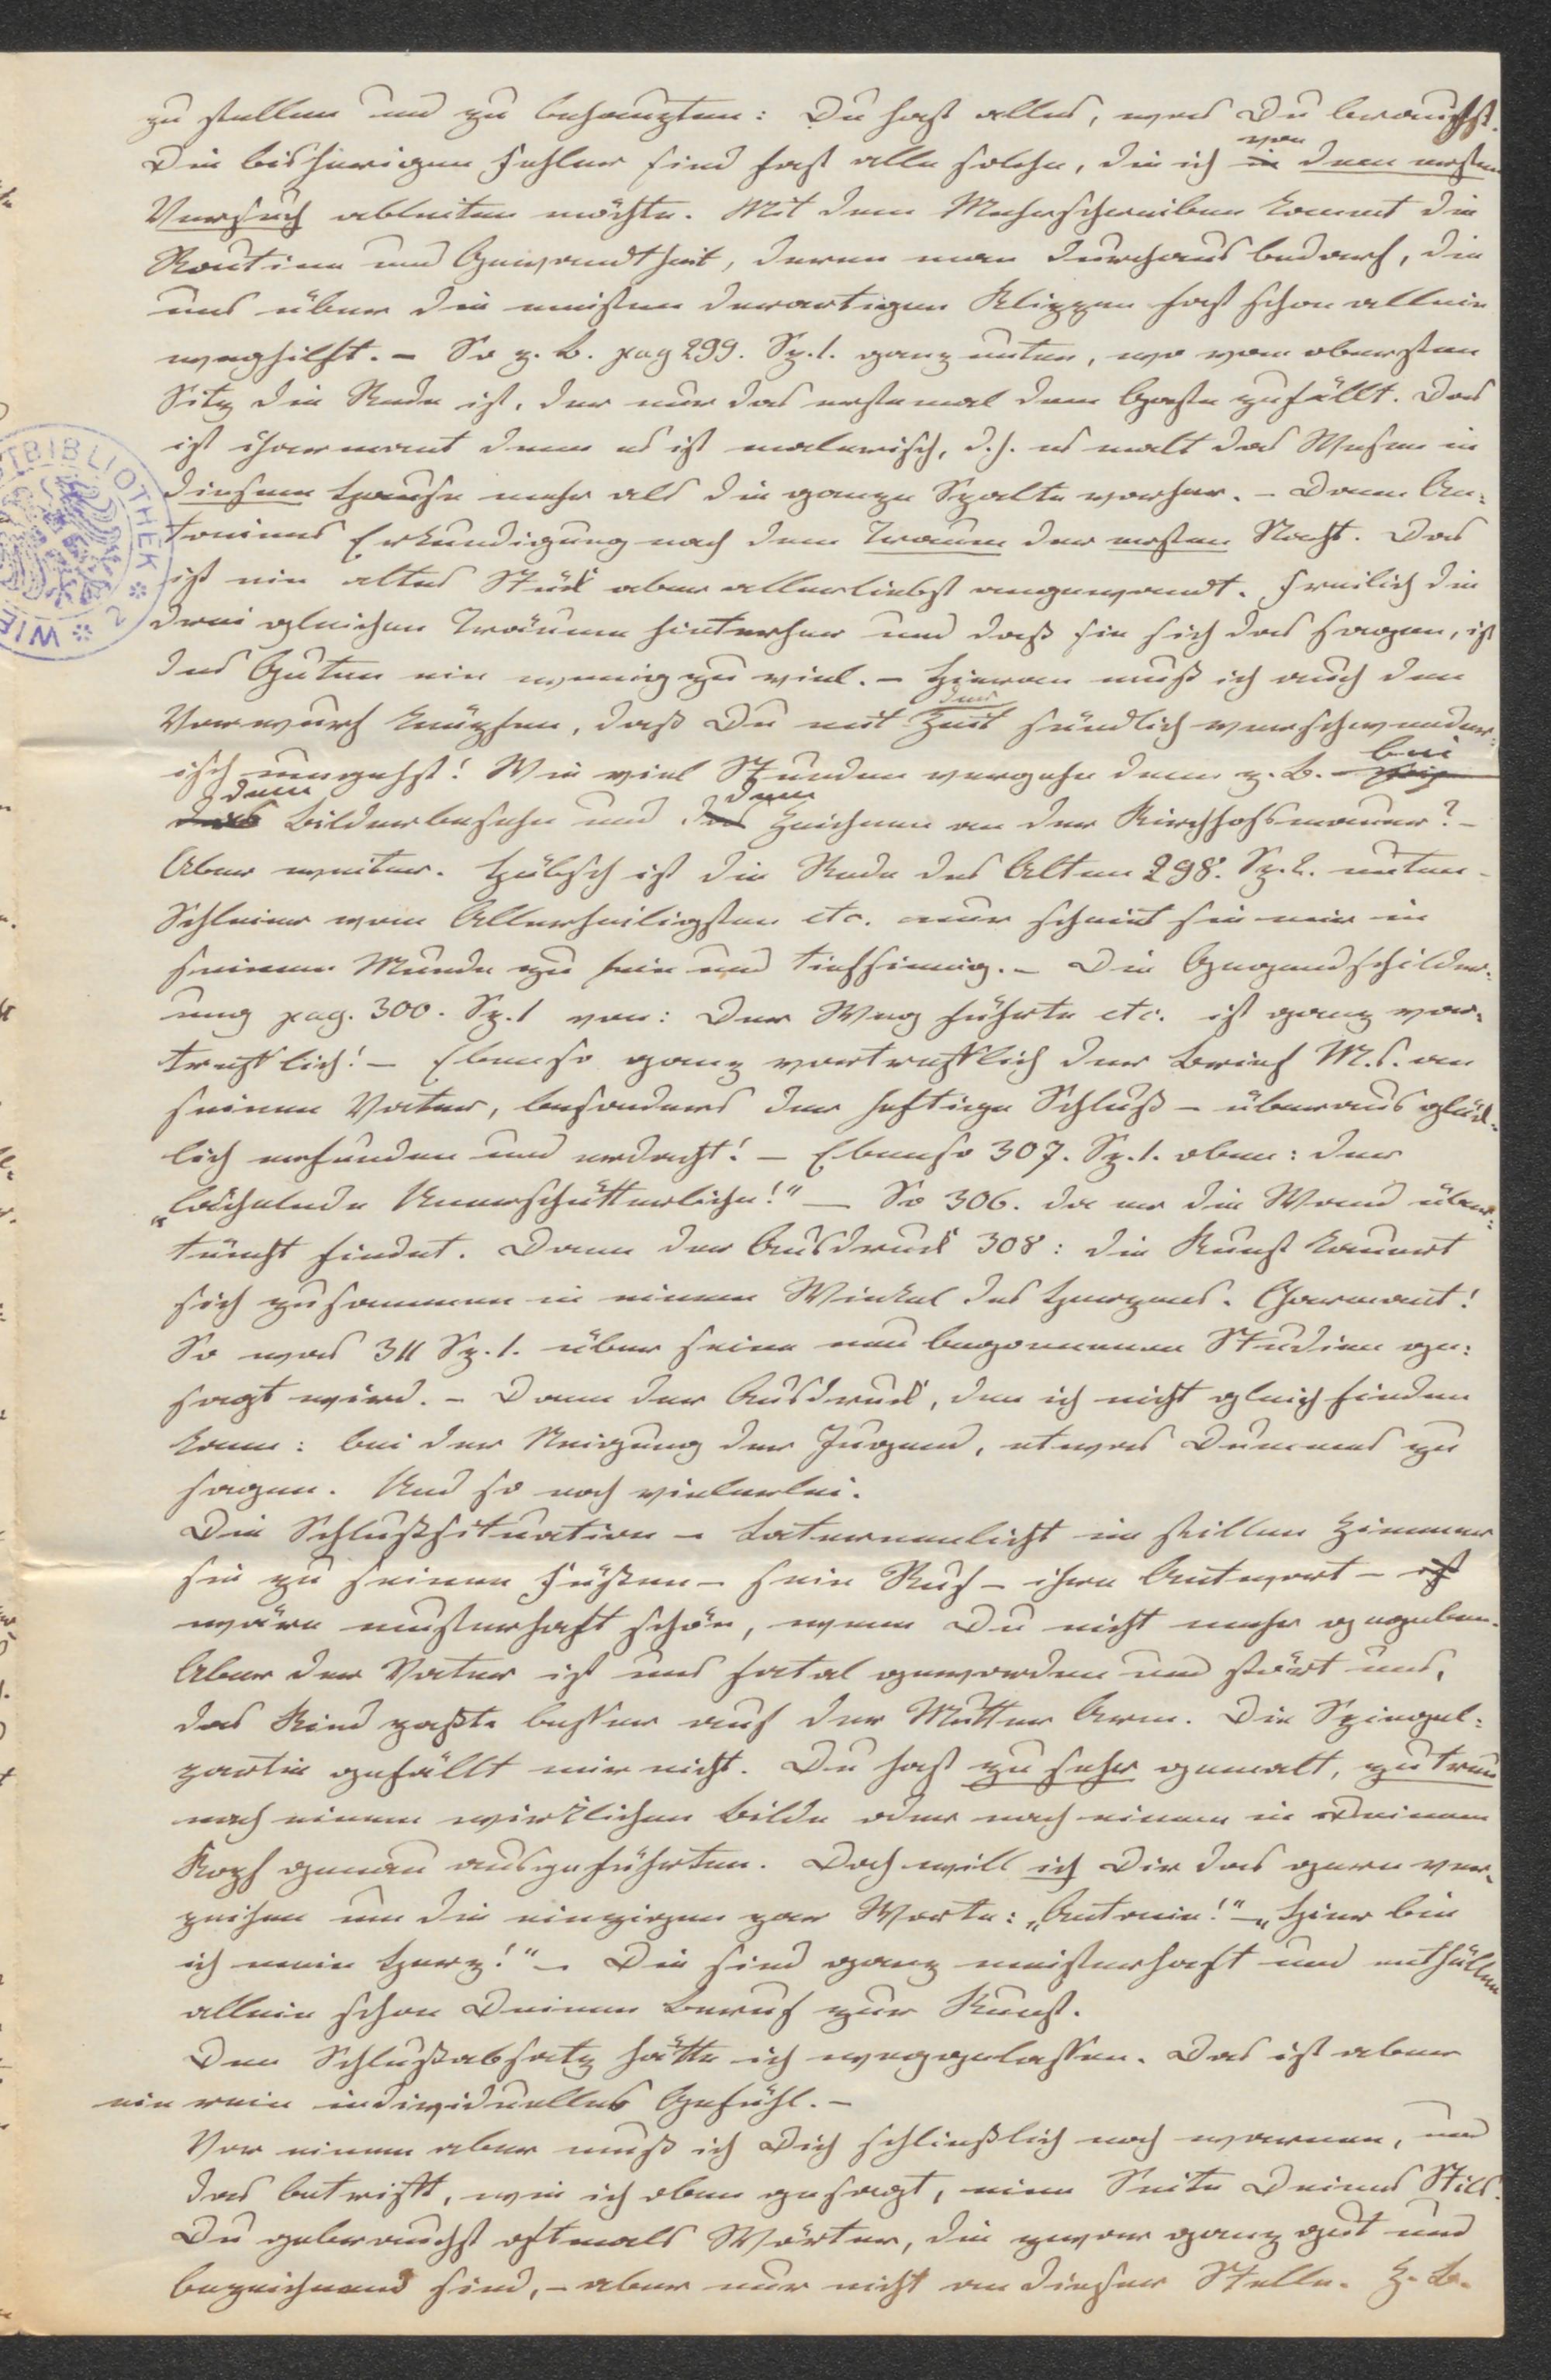 zu stellen und zu behaupten: Du hast alles, was Du brauchst.
Die bisherigen Fehler sind fast alle solche, die ich in von dem ersten
Versuch ableiten möchte. Mit dem Mehrschreiben kommt die
Routine und Gewandtheit, deren man durchaus bedarf, die
uns über die meisten derartigen Klippen fast schon allein
weghilft. – So z. B. pag 299. Sp. 1. ganz unten, wo vom obersten
Sitz die Rede ist, der nur das erstemal dem Gaste zufällt. Das
ist charmant denn es ist malerisch, d. h. es malt das Wesen in
diesem Hause mehr als die ganze Spalte vorher. – Dann An:
toniens Erkundigung nach dem Traum der ersten Nacht. Das
ist ein altes Stück aber allerliebst angewandt. Freilich die
drei gleichen Träume hinterher und daß sie sich das sagen, ist
des Guten ein wenig zu viel. – Hieran muß ich auch den
Vorwurf knüpfen, daß Du mit der Zeit sündlich verschwender:
isch umgehst! Wie viel Stunden vergehn denn z. B. bei
dem Bilderbesehn und dem Zeichnen an der Kirchhofsmauer? –
Aber weiter. Hübsch ist die Rede des Alten 298. Sp. 2. unten –
Schleier vom Allerheiligsten etc. nur scheint sie mir in
seinem Munde zu fein und tiefsinnig. – Die Gegendschilder:
ung pag. 300. Sp. 1 von: Der Weg führte etc. ist ganz vor:
trefflich! – Ebenso ganz vortrefflich der Brief M.s. an
seinen Vater, besonders der heftige Schluß – überaus glück:
lich erfunden und erdacht! – Ebenso 307. Sp. 1. oben: der
„lächelnde Unerschütterliche!" – So 306. da er die Wand über:
tüncht findet. Dann der Ausdruck 308: die Kunst kauert
sich zusammen in einem Winkel des Herzens. Charmant!
So was 311 Sp. 1. über seine neu begonnenen Studien ge:
sagt wird. – Dann der Ausdruck, den ich nicht gleich finden
kann: bei der Neigung der Jugend, etwas Dummes zu
sagen. Und so noch vielerlei.
Die Schlußsituation – Laternenlicht im stillen Zimmer
sie zu seinen Füßen – sein Ruf – ihre Antwort – ist
wäre musterhaft schön, wenn Du nicht mehr gegeben.
Aber der Vater ist uns fatal geworden und stört uns,
das Kind paßte besser auf der Mutter Arm. Die Spiegel:
partie gefällt mir nicht. Du hast zu sehr gemalt, zu treu
nach einem wirklichen Bilde oder nach einem in Deinem
Kopf genau ausgeführten. Doch will ich Dir das gern ver:
zeihen um die einzigen paar Worte: „Antonie!" – „Hier bin
ich mein Herz!" – Die sind ganz meisterhaft und enthüllen
allein schon Deinen Beruf zur Kunst.
Den Schlußabsatz hätte ich weggelassen. Das ist aber
ein rein individuelles Gefühl. –
Vor einem aber muß ich Dich schließlich noch warnen, und
das betrifft, wie ich oben gesagt, eine Seite Deines Stils.
Du gebrauchst oftmals Wörter, die zwar ganz gut und
bezeichnend sind, – aber nur nicht an dieser Stelle. Z. B.